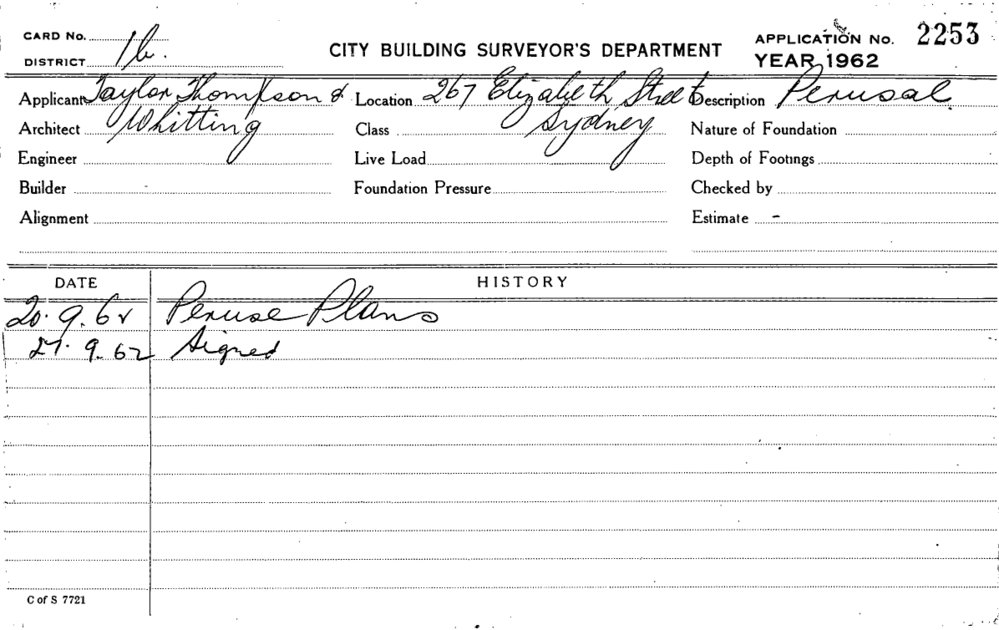 CARD No. 1b.
DISTRICT
CITY BUILDING SURVEYOR'S DEPARTMENT
APPLICATION No. 2253
YEAR 1962
Applicant Taylor Thompson & Location 267 Elizabeth Street Description Perusal
Architect Whitting Class Sydney Nature of Foundation
Engineer Live Load Depth of Footings
Builder Foundation Pressure Checked by
Alignment Estimate -
DATE HISTORY
20.9.62 Peruse Plans
27.9.62 Signed
C of S 7721